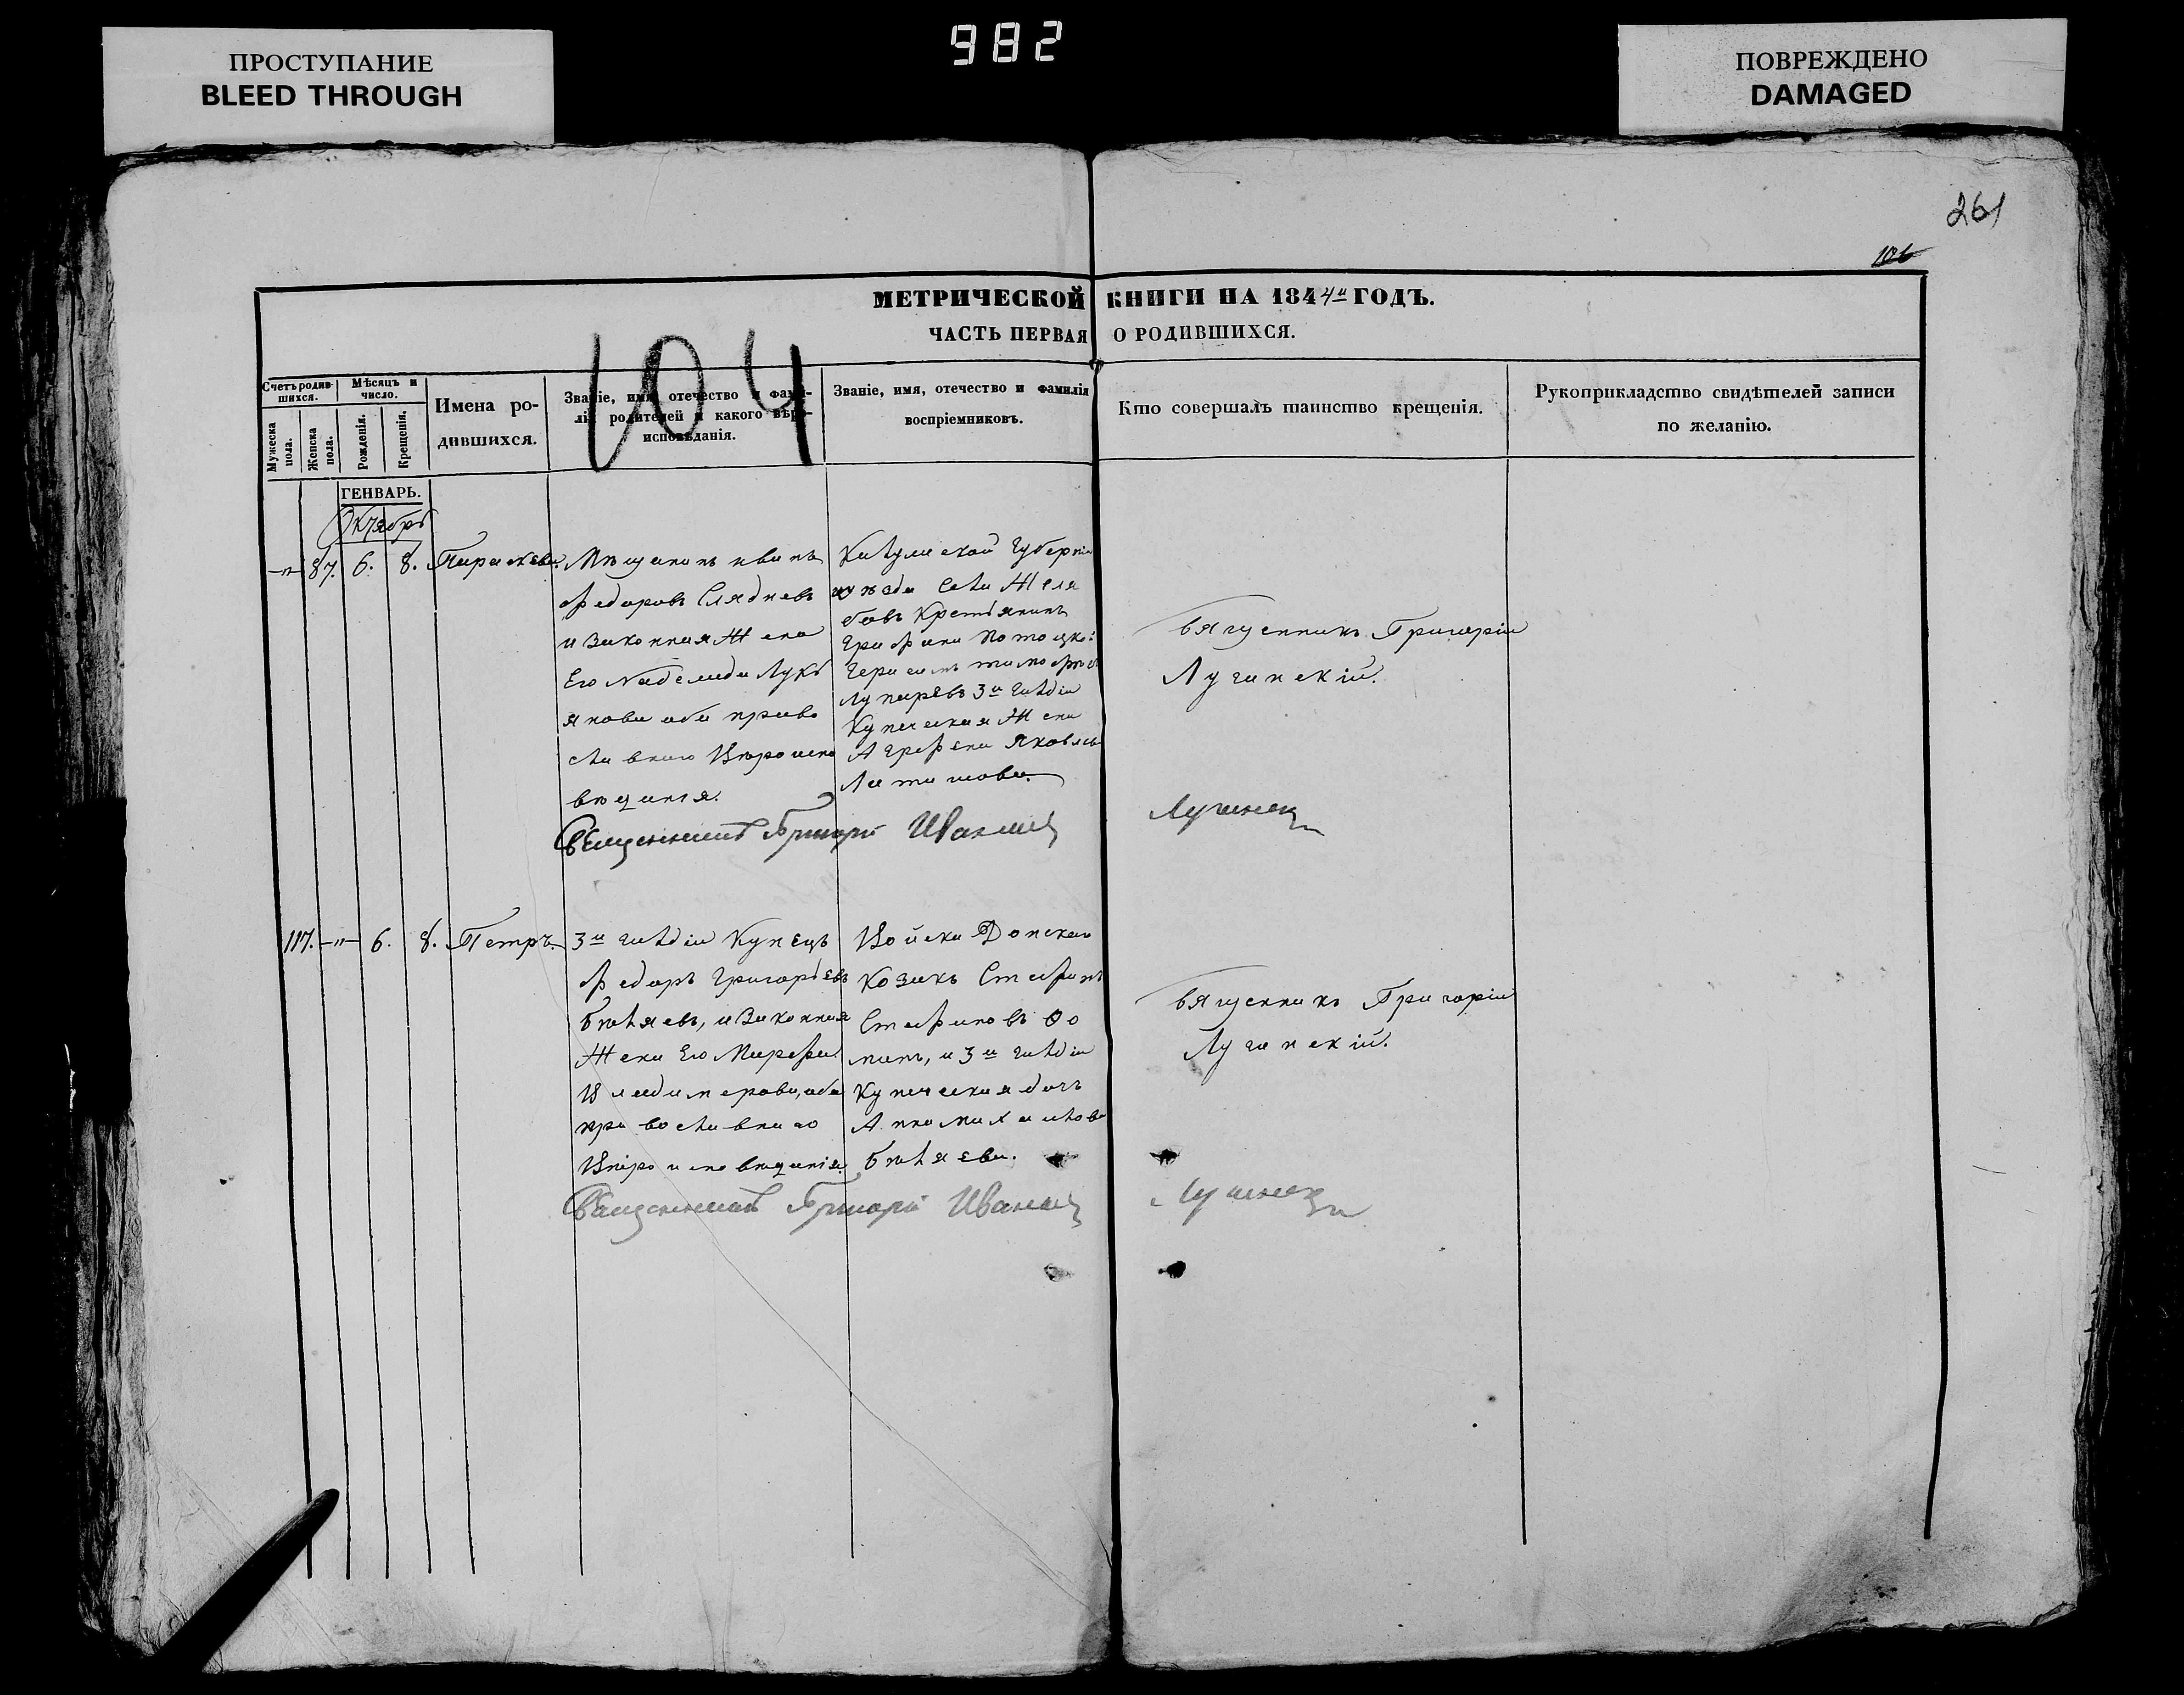 982
ПРОСТУПАНИЕ
BLEED THROUGH
ПОВРЕЖДЕНО
DAMAGED
261
106
МЕТРИЧЕСКОЙ КНИГИ НА 1844й ГОДЪ.
ЧАСТЬ ПЕРВАЯ О РОДИВШИХСЯ.
104
Счетъ родив-
шихся.
Мужеска
пола.
Женска
пола.
Мѣсяцъ и
число.
Рожденія.
Крещенія.
Имена ро-
дившихся.
Званіе, имя, отечество и фами-
лія родителей и какого вѣро-
исповѣданія.
Званіе, имя, отечество и фамилія
воспріемниковъ.
Кто совершалъ таинство крещенія.
Рукоприкладство свидѣтелей записи
по желанію.
ГЕНВАРЬ.
Октябрь
-"- 87. 6. 8. Параскева.
Мѣщанинъ Иванъ
Федоровъ Слядневъ
и Законная Жена
Его Надежда Лукь
янова оба право
славнаго Вѣроиспо
вѣданія.
Калужской Губерніи
уѣзда Села Желя
бовъ Крестьянинъ
Графини Потоцкой
Герасимъ Тимофѣевъ
3й гильдіи
Купеческая Жена
Агрефена Яковлева
Священникъ Григорій
Лучинскій.
Священникъ Григорій Иванов Лучинский
117. -"- 6. 8. Петръ.
3й гильдіи Купецъ
Федоръ Григорьевъ
Бѣляевъ, и Законная
Жена Его Марефа
Владимерова, оба
православнаго
Вѣроисповѣданія.
Войска Донскаго
Козакъ Стефанъ
Стефановъ Ѳо
минъ, и 3й гильдіи
Купеческая дочь
Анна Михаилова
Бѣляева.
Священникъ Григорій
Лучинскій.
Священникъ Григорій Иванов Лучинский